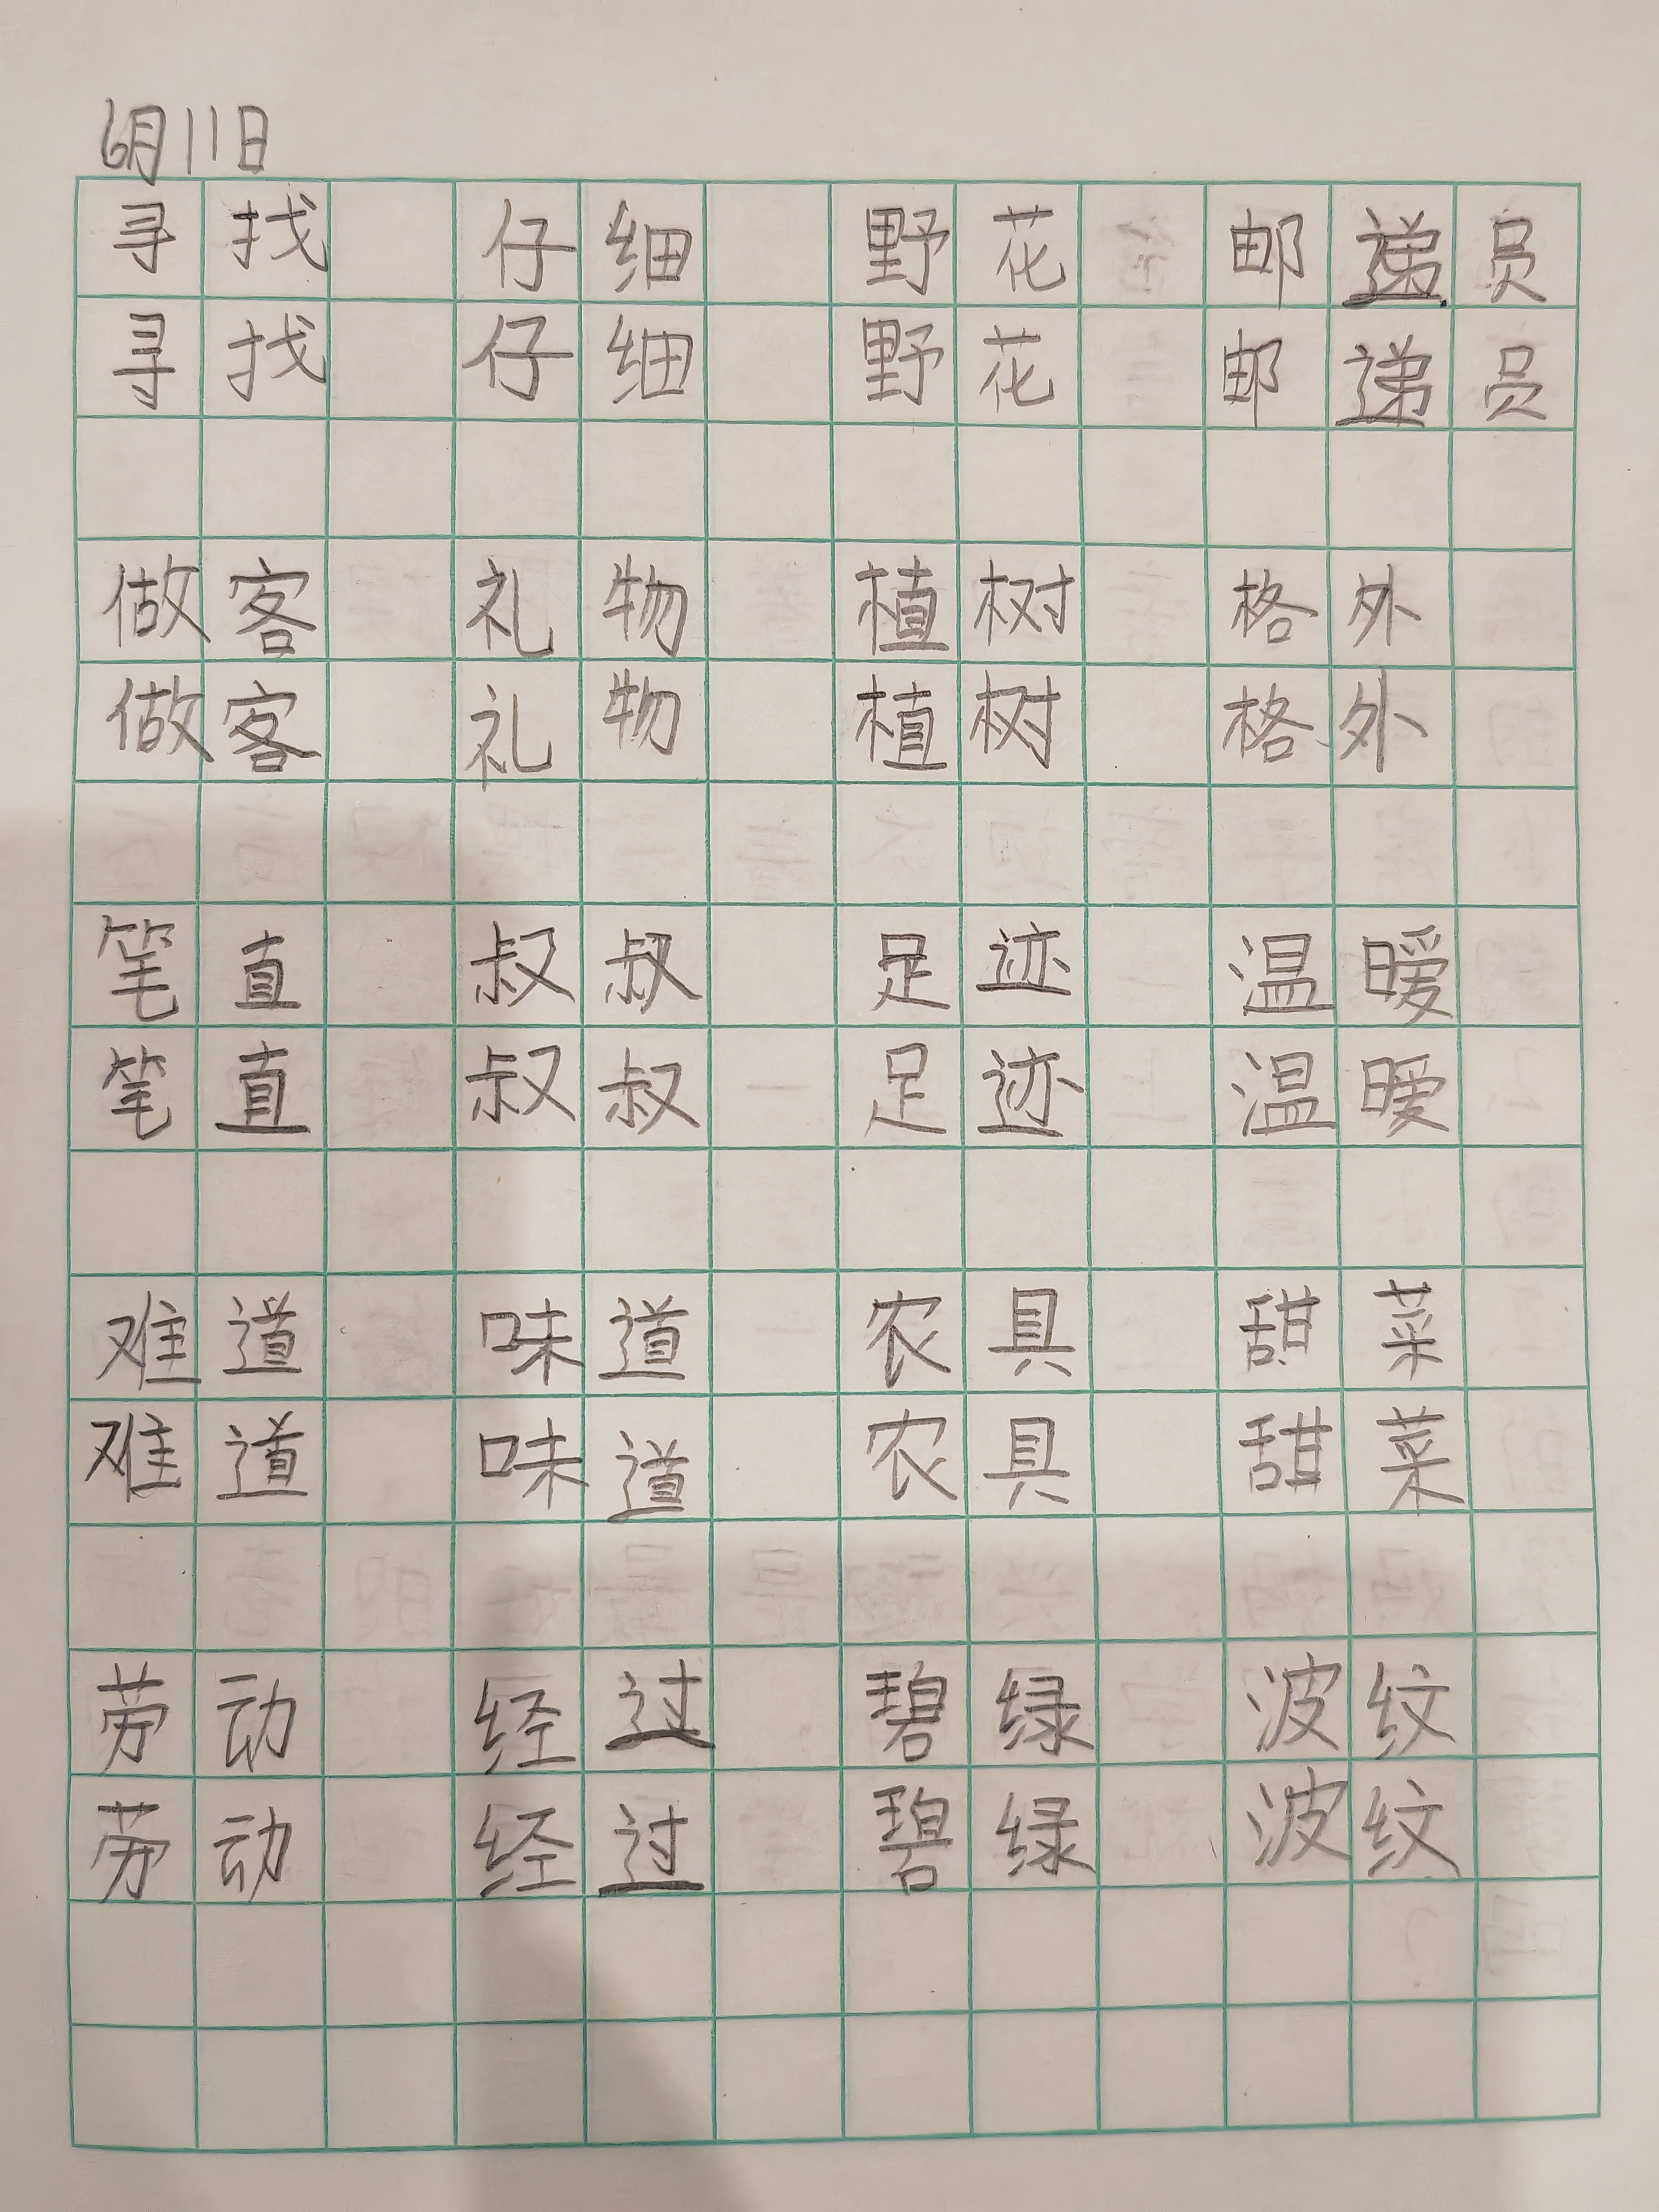 6月11日
寻找 仔细 野花 邮递员
寻找 仔细 野花 邮递员
做客 礼物 植树 格外
做客 礼物 植树 格外
笔直 叔叔 足迹 温暖
笔直 叔叔 足迹 温暖
难道 味道 农具 甜菜
难道 味道 农具 甜菜
劳动 经过 碧绿 波纹
劳动 经过 碧绿 波纹